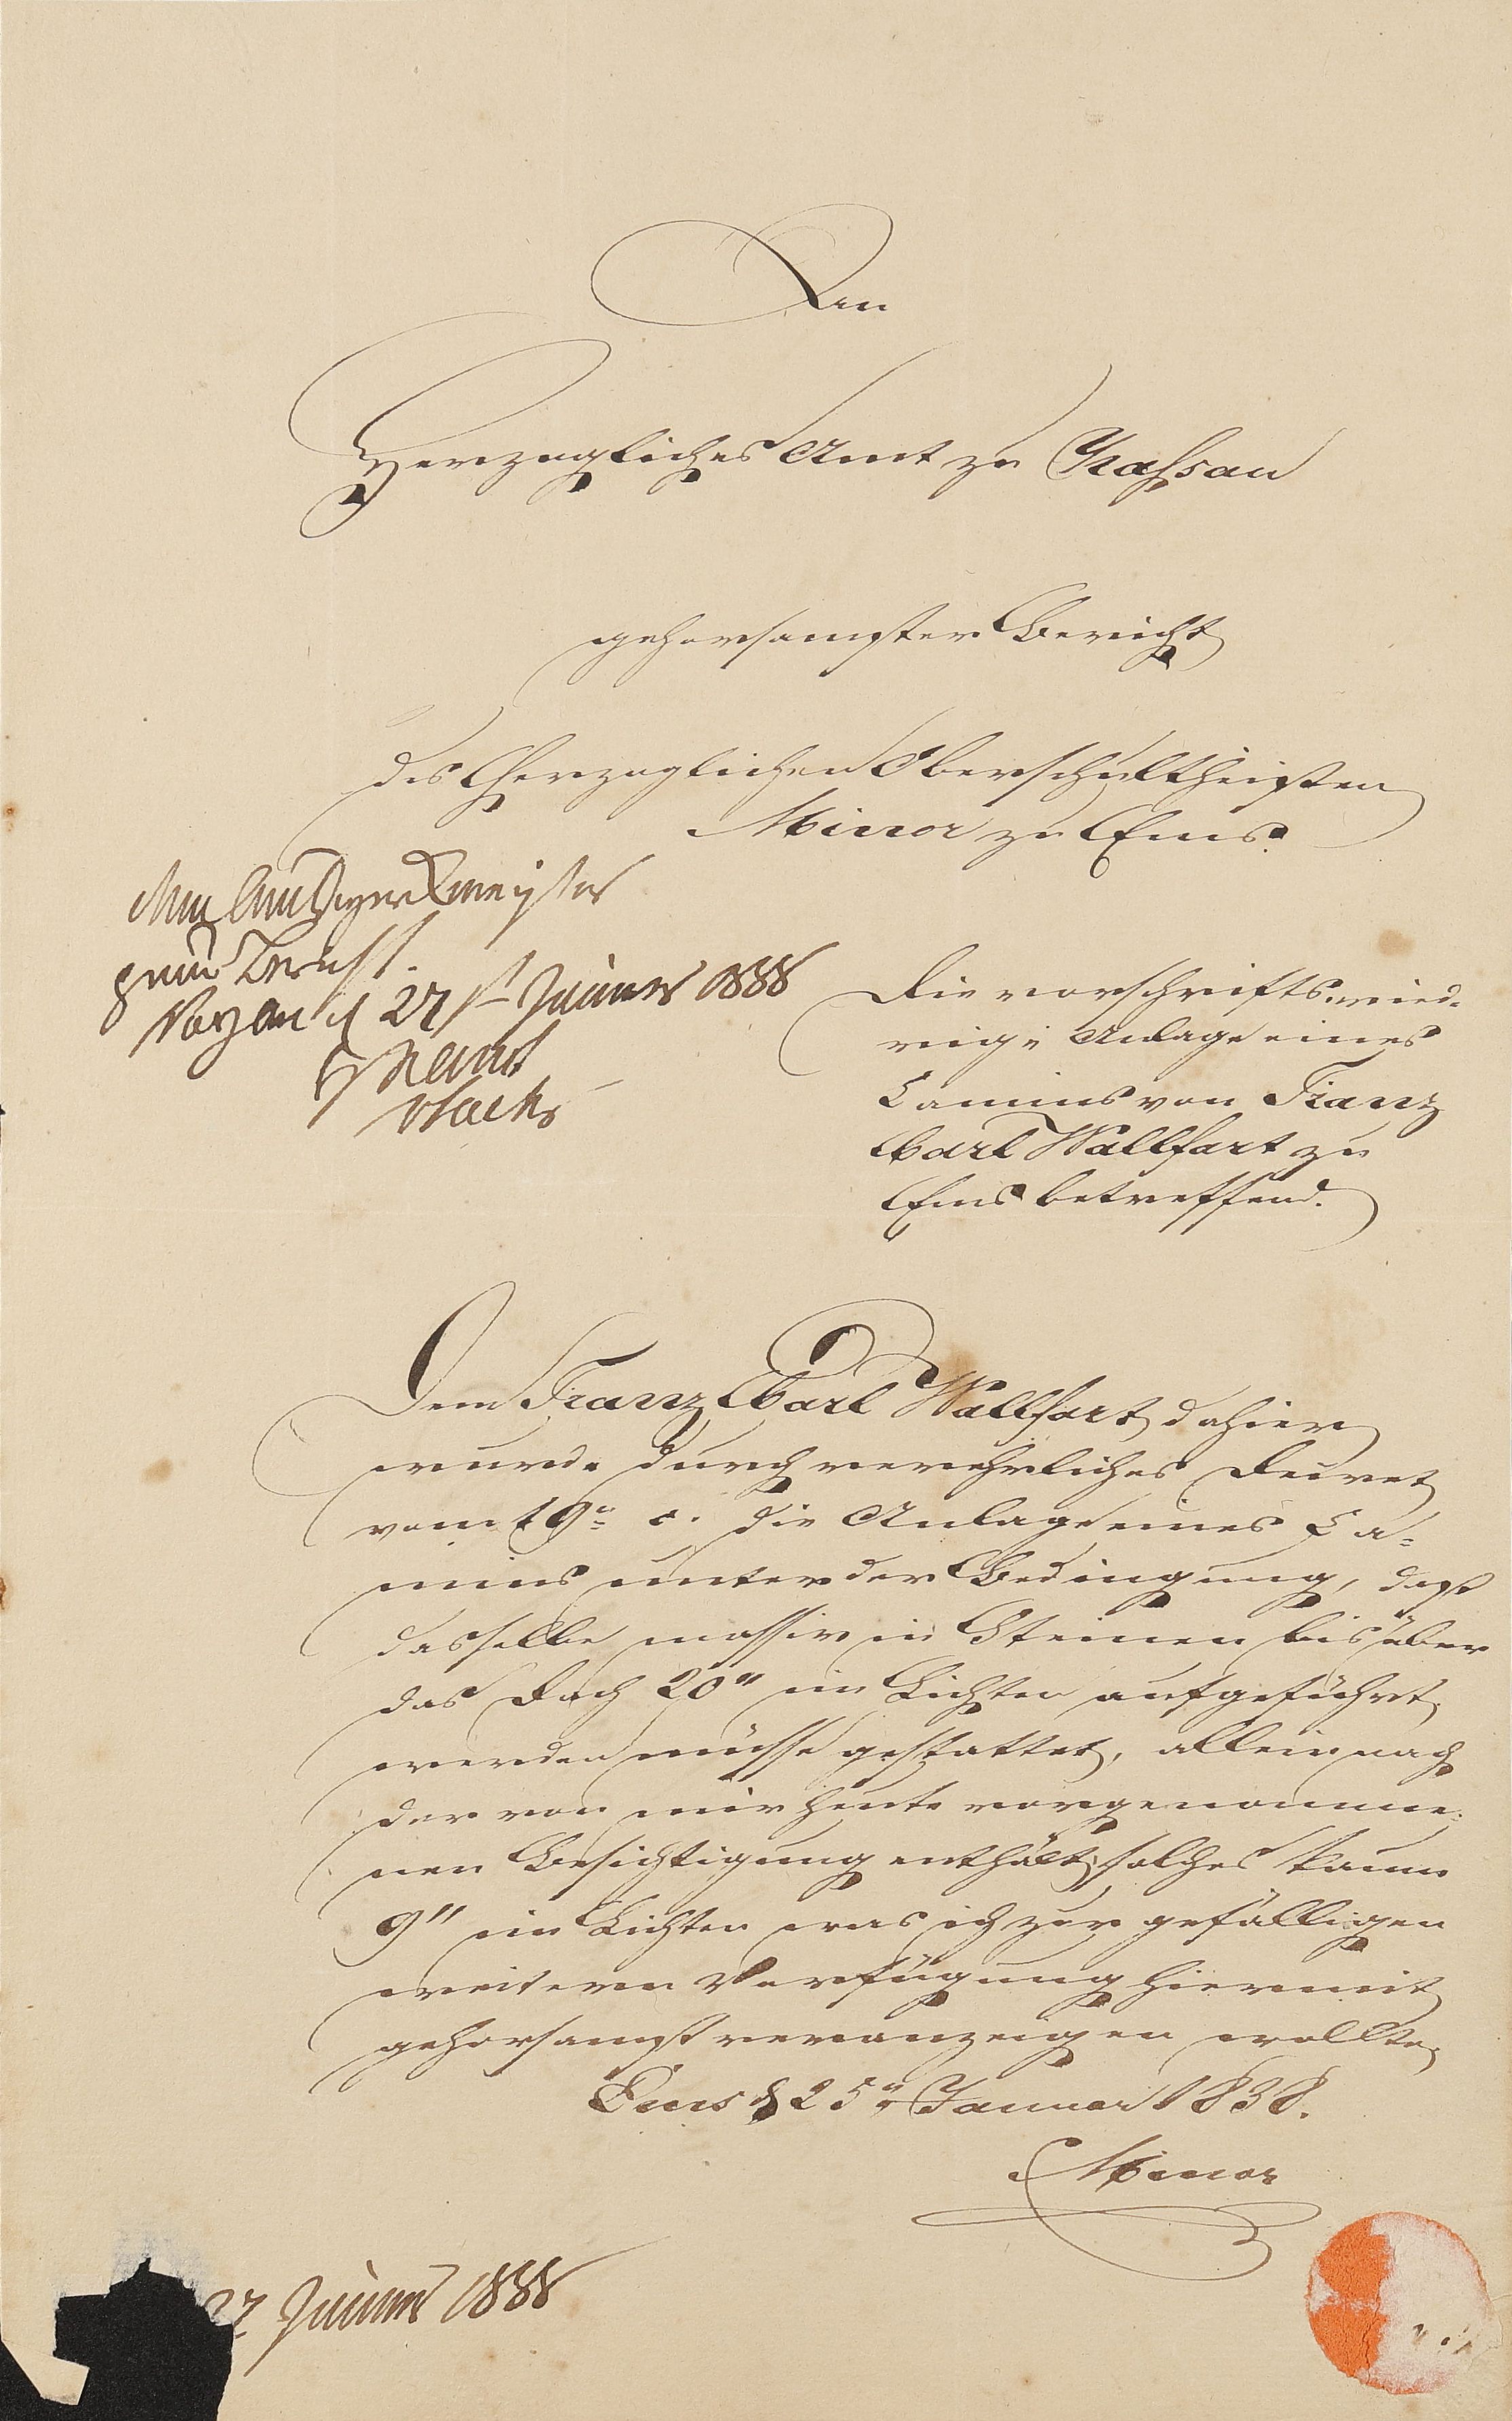 An
Herzogliches Amt zu Nassau
gehorsamster Bericht
des Herzoglichen Oberschultheißen
Minor zu Ems.
Bericht.
Nassau d 27 Januar 1838
Die vorschriftswied-
rige Anlage eines
Camins von Franz
Carl Wallfart zu
Ems betreffend.
Dem Franz Carl Wallfart dahier
wurde durch verehrliches Decret
vom 19n c. die Anlage eines Ca-
mins unter der Bedingung, daß
dasselbe massiv in Steinen bis über
das Dach 20" im Lichten aufgeführt
werden müsse gestattet, allein nach
der von mir heute vorgenomme-
nen Besichtigung enthält solches kaum
9" im Lichten was ich zur gefälligen
weiteren Verfügung hiermit
gehorsamst anzeigen wollte.
Ems d 25n Januar 1838.
Minor
27 Januar 1838